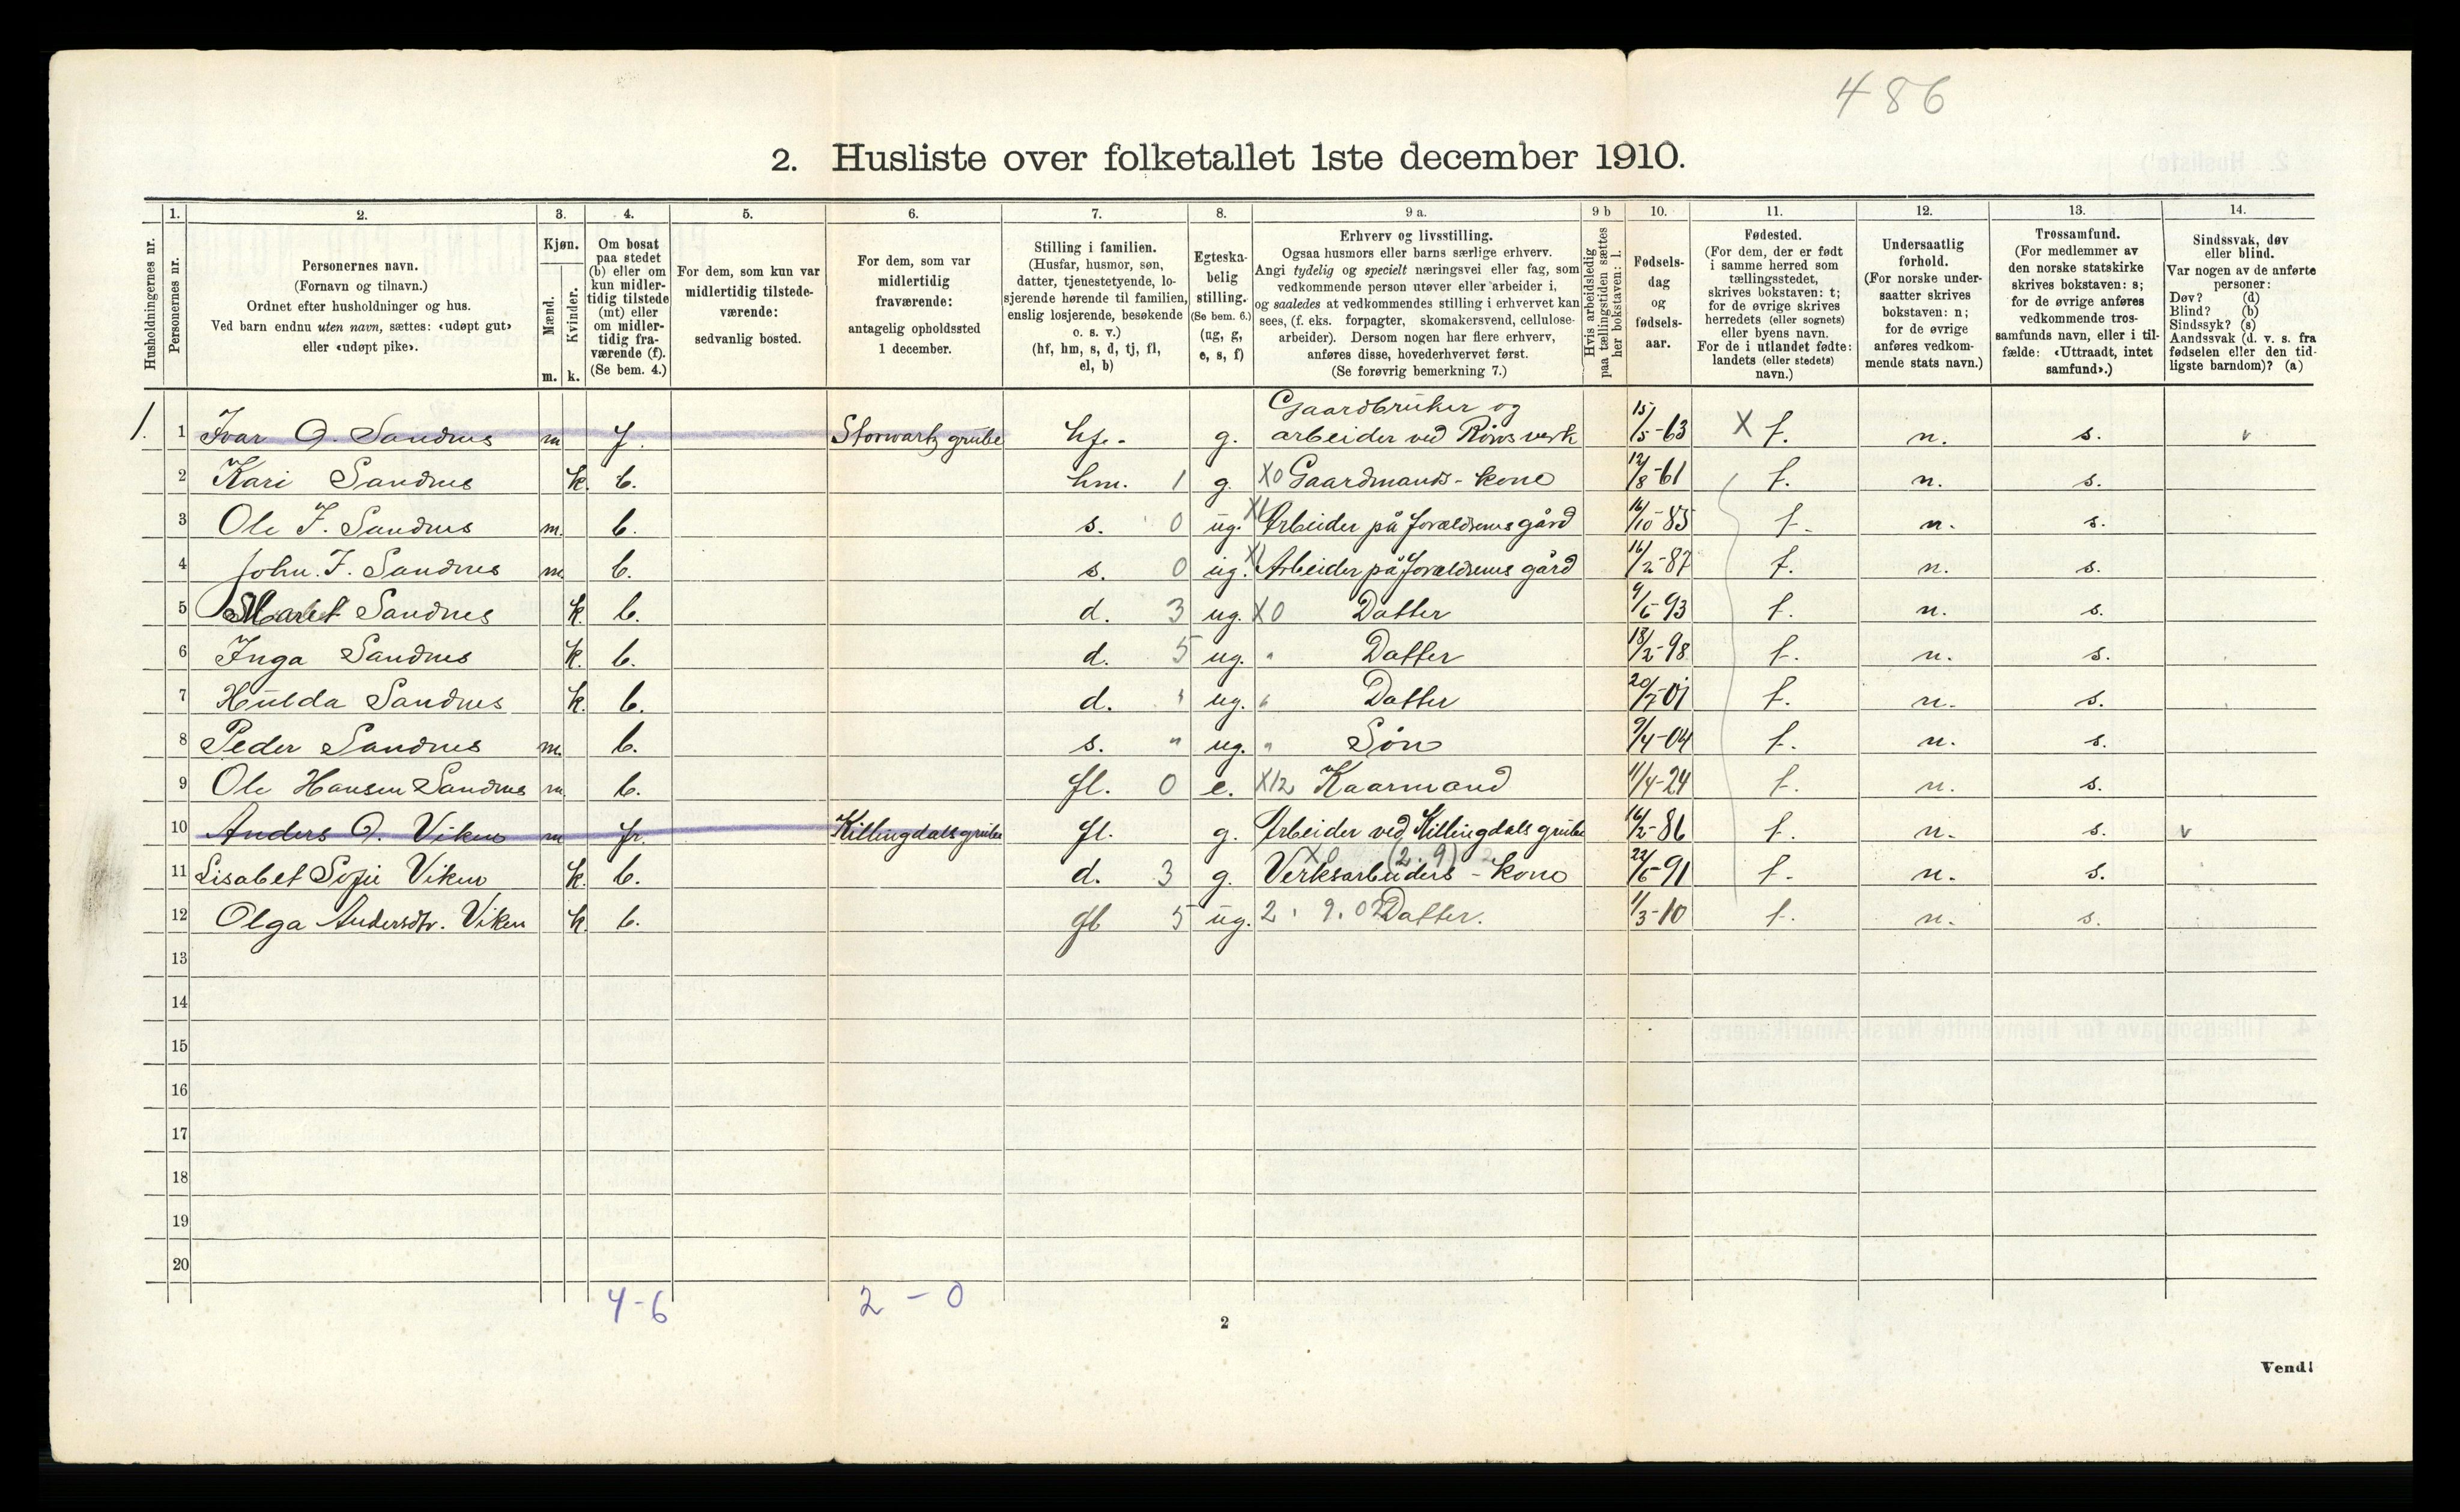 486
2. Husliste over folketallet 1ste december 1910.
Husholdningernes nr.
1.
Personernes nr.
2.
Personernes navn.
(Fornavn og tilnavn.)
Ordnet efter husholdninger og hus.
Ved barn endnu uten navn, sættes: «udøpt gut»
eller «udøpt pike».
3.
Kjøn.
Mænd.
Kvinder.
m. k.
4.
Om bosat
paa stedet
(b) eller om
kun midler-
tidig tilstede
(mt) eller
om midler-
tidig fra-
værende (f).
(Se bem. 4.)
5.
For dem, som kun var
midlertidig tilstede-
værende:
sedvanlig bosted.
6.
For dem, som var
midlertidig
fraværende:
antagelig opholdssted
1 december.
7.
Stilling i familien.
(Husfar, husmor, søn,
datter, tjenestetyende, lo-
sjerende hørende til familien,
enslig losjerende, besøkende
o. s. v.)
(hf, hm, s, d, tj, fl,
el, b)
8.
Egteska-
belig
stilling.
(Se bem. 6.)
(ug, g,
e, s, f)
9 a.
Erhverv og livsstilling.
Ogsaa husmors eller barns særlige erhverv.
Angi tydelig og specielt næringsvei eller fag, som
vedkommende person utøver eller arbeider i,
og saaledes at vedkommendes stilling i erhvervet kan
sees, (f. eks. forpagter, skomakersvend, cellulose-
arbeider). Dersom nogen har flere erhverv,
anføres disse, hovederhvervet først.
(Se forøvrig bemerkning 7.)
9 b
Hvis arbeidsledig
paa tællingstiden sættes
her bokstaven: l.
10.
Fødsels-
dag
og
fødsels-
aar.
11.
Fødested.
(For dem, der er født
i samme herred som
tællingsstedet,
skrives bokstaven: t;
for de øvrige skrives
herredets (eller sognets)
eller byens navn.
For de i utlandet fødte:
landets (eller stedets)
navn.)
12.
Undersaatlig
forhold.
(For norske under-
saatter skrives
bokstaven: n;
for de øvrige
anføres vedkom-
mende stats navn.)
13.
Trossamfund.
(For medlemmer av
den norske statskirke
skrives bokstaven: s;
for de øvrige anføres
vedkommende tros-
samfunds navn, eller i til-
fælde: «Uttraadt, intet
samfund».)
14.
Sindssvak, døv
eller blind.
Var nogen av de anførte
personer:
Døv? (d)
Blind? (b)
Sindssyk? (s)
Aandssvak (d. v. s. fra
fødselen eller den tid-
ligste barndom)? (a)
1. 1 Ivar O. Sandnes m f. Storwartz grube hf. g. Gaardbruker og arbeider ved Röros verk 15/5-63 X t. n. s. v
2 Kari Sandnes k. b. hm. 1 g. X0 Gaardmands-kone 12/8-61 t. n. s.
3 Ole I. Sandnes m. b. s. 0 ug. X1 Arbeider på forældrenes gård 16/10-85 t. n. s.
4 John. I. Sandnes m. b. s. 0 ug. X1 Arbeider på forældrenes gård 16/2-87 t. n. s.
5 Maret Sandnes k. b. d. 3 ug. X0 Datter 9/6 93 t. n. s.
6 Inga Sandnes k. b. d. 5 ug. " Datter 18/2-98 t. n. s.
7 Hulda Sandnes k. b. d. " ug. " Datter 20/7-01 t. n. s.
8 Peder Sandnes m. b. s. " ug. " Sön 9/4-04 t. n. s.
9 Ole Hansen Sandnes m. b. fl. 0 e. X12 Kaarmand 11/4-24 t. n. s.
10 Anders O. Viken m fr. Killingdalsgruben fl. g. Arbeider ved Killingdals grube 16/2-86 t. n. s. v
11 Lisabet Sofie Viken k. b. d. 3 g. X0 (2.9) Verksarbeiders-kone 22/6-91 t. n. s.
12 Olga Andersdtr. Viken k. b. fl 5 ug. 2. 9. 02 Datter. 1/3-10 t. n. s.
13
14
15
16
17
18
19
20
4-6 2-0
2
Vend!